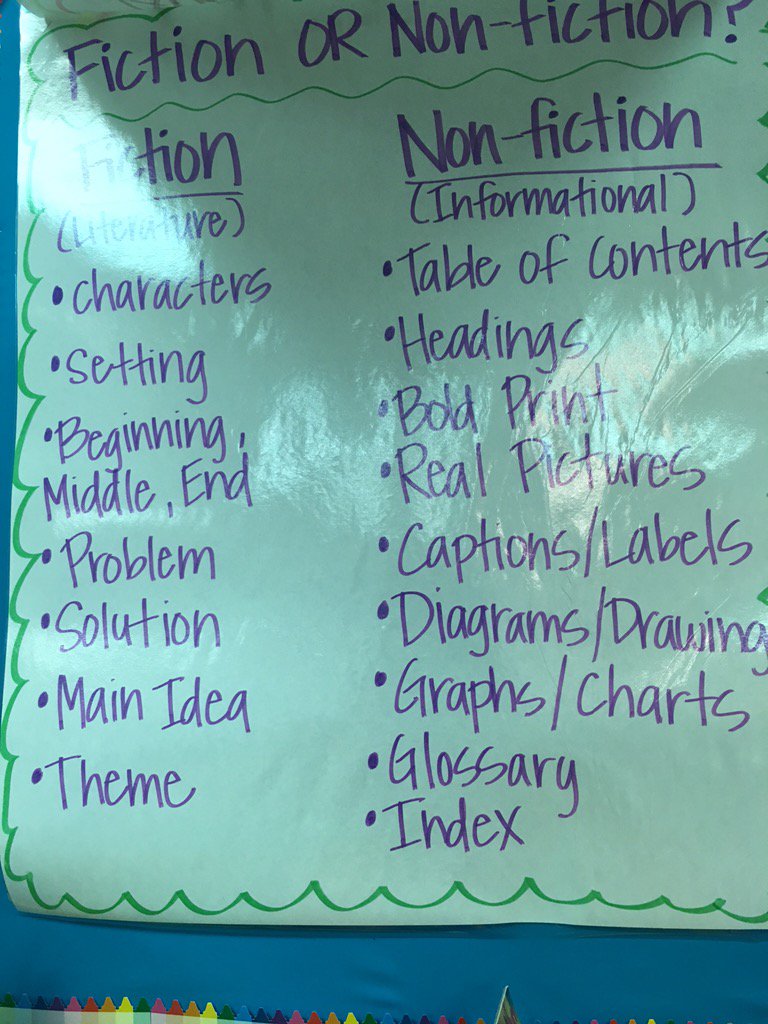 Fiction OR Non-fiction?
Fiction
(Literature)
• characters
• Setting
• Beginning,
Middle, End
• Problem
• Solution
• Main Idea
• Theme
Non-fiction
(Informational)
• Table of Contents
• Headings
• Bold Print
• Real Pictures
• Captions/Labels
• Diagrams/Drawing
• Graphs/Charts
• Glossary
• Index